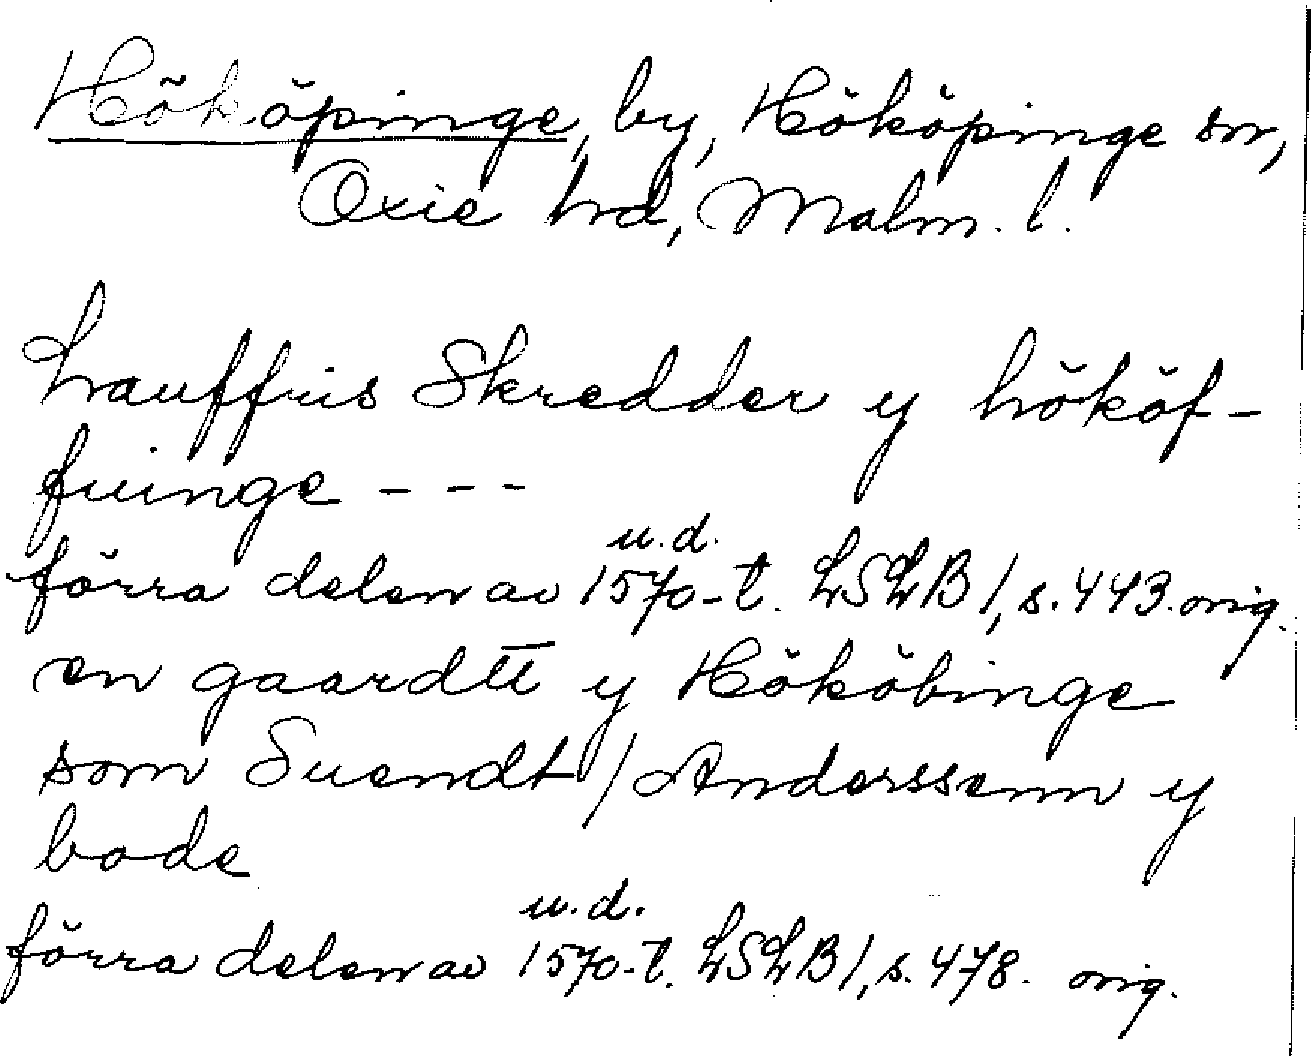 Hököpinge, by, Hököpinge sn,
Oxie hd, Malm. l.
Lauffris Skredder y hököf-
fuinge - - -
u.d.
förra delen av 1570-t. LSLB 1, s. 443. orig.
en gaardtt y Hököbinge
som Suendt / Anderssenn y
bode
u.d.
förra delen av 1570-t. LSLB 1, s. 478. orig.